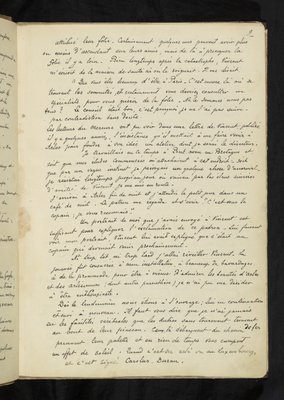 attribués leur folie. Certainement quelques uns peuvent avoir plus
ou moins d'ascendant sur leurs amis, mais de là à provoquer la
folie il y a loin. Bien longtemps après la catastrophe, Vincent
m'écrivit de la maison de santé où on le soignait. Il me disait
" Que vous êtes heureux d'être à Paris. C'est encore là où se
trouvent les sommités et certainement vous devriez consulter un
spécialiste pour vous guérir de la folie. Ne le sommes nous pas
tous ? Le conseil était bon, c'est pourquoi je ne l'ai pas suivi -
par contradiction sans doute
Les lecteurs du Mercure ont pu voir dans une lettre de Vincent publiée
il y a quelques années, l'insistance qu'il mettait à me faire venir à
Arles pour fonder à son idée un atelier dont je serais le directeur.
Je travaillais en ce temps à Pont-Aven en Bretagne et
soit que mes études commencées m'attachaient à cet endroit, soit
que par un vague instinct je prévoyais un quelque chose d'anormal,
je résistai longtemps jusqu'au jour où, vaincu par les élans sincères
d'amitié de Vincent, je me mis en route.
J'arrivai à Arles fin de nuit et j'attendis le petit jour dans un
café de nuit. Le patron me regarda et s'écria : " C'est vous le
copain ; je vous reconnais "
Un portrait de moi que j'avais envoyé à Vincent est
suffisant pour expliquer l'exclamation de ce patron. Lui faisant
voir mon portrait, Vincent lui avait expliqué que c'était un
copain qui devait venir prochainement.
Ni trop tôt, ni trop tard j'allai réveiller Vincent. La
journée fut consacrée à mon installation, à beaucoup de bavardages
à de la promenade pour être à même d'admirer les beautés d'Arles
et des arlésiennes (dont entre parenthèse, je n'ai pu me décider
à être enthousiaste)
Dès le lendemain nous étions à l'ouvrage ; lui en continuation
et moi à nouveau. Il faut vous dire que je n'ai jamais eu
les facilités cérébrales que les autres sans tourment trouvent
au bout de leur pinceau. Ceux-là débarquent du chemin de fer
prennent leur palette et en rien de temps vous campent
un effet de soleil. Quand c'est sec cela va au Luxembourg,
et c'est signé Carolus Duran.